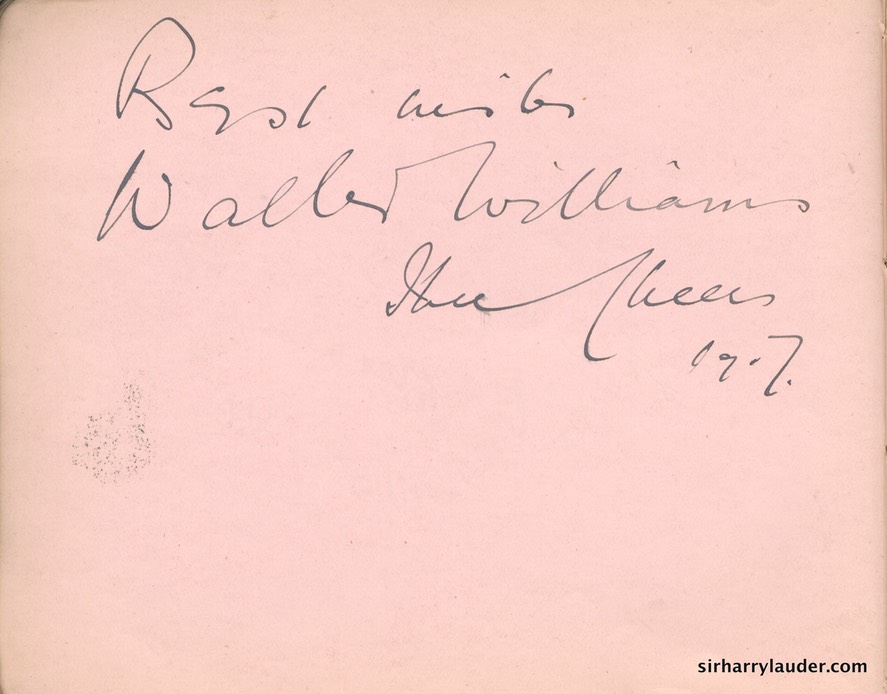 Best wishes
Walter Williams
Xmas Cheers
1907.
sirharrylauder.com